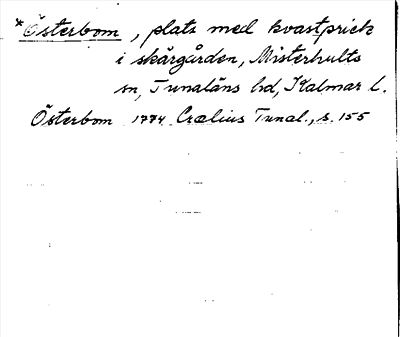 *Österbom, plats med kvastprick
i skärgården, Misterhults
sn, Tunaläns hd, Kalmar l.
Österbom 1774 Crælius Tunal., s. 155